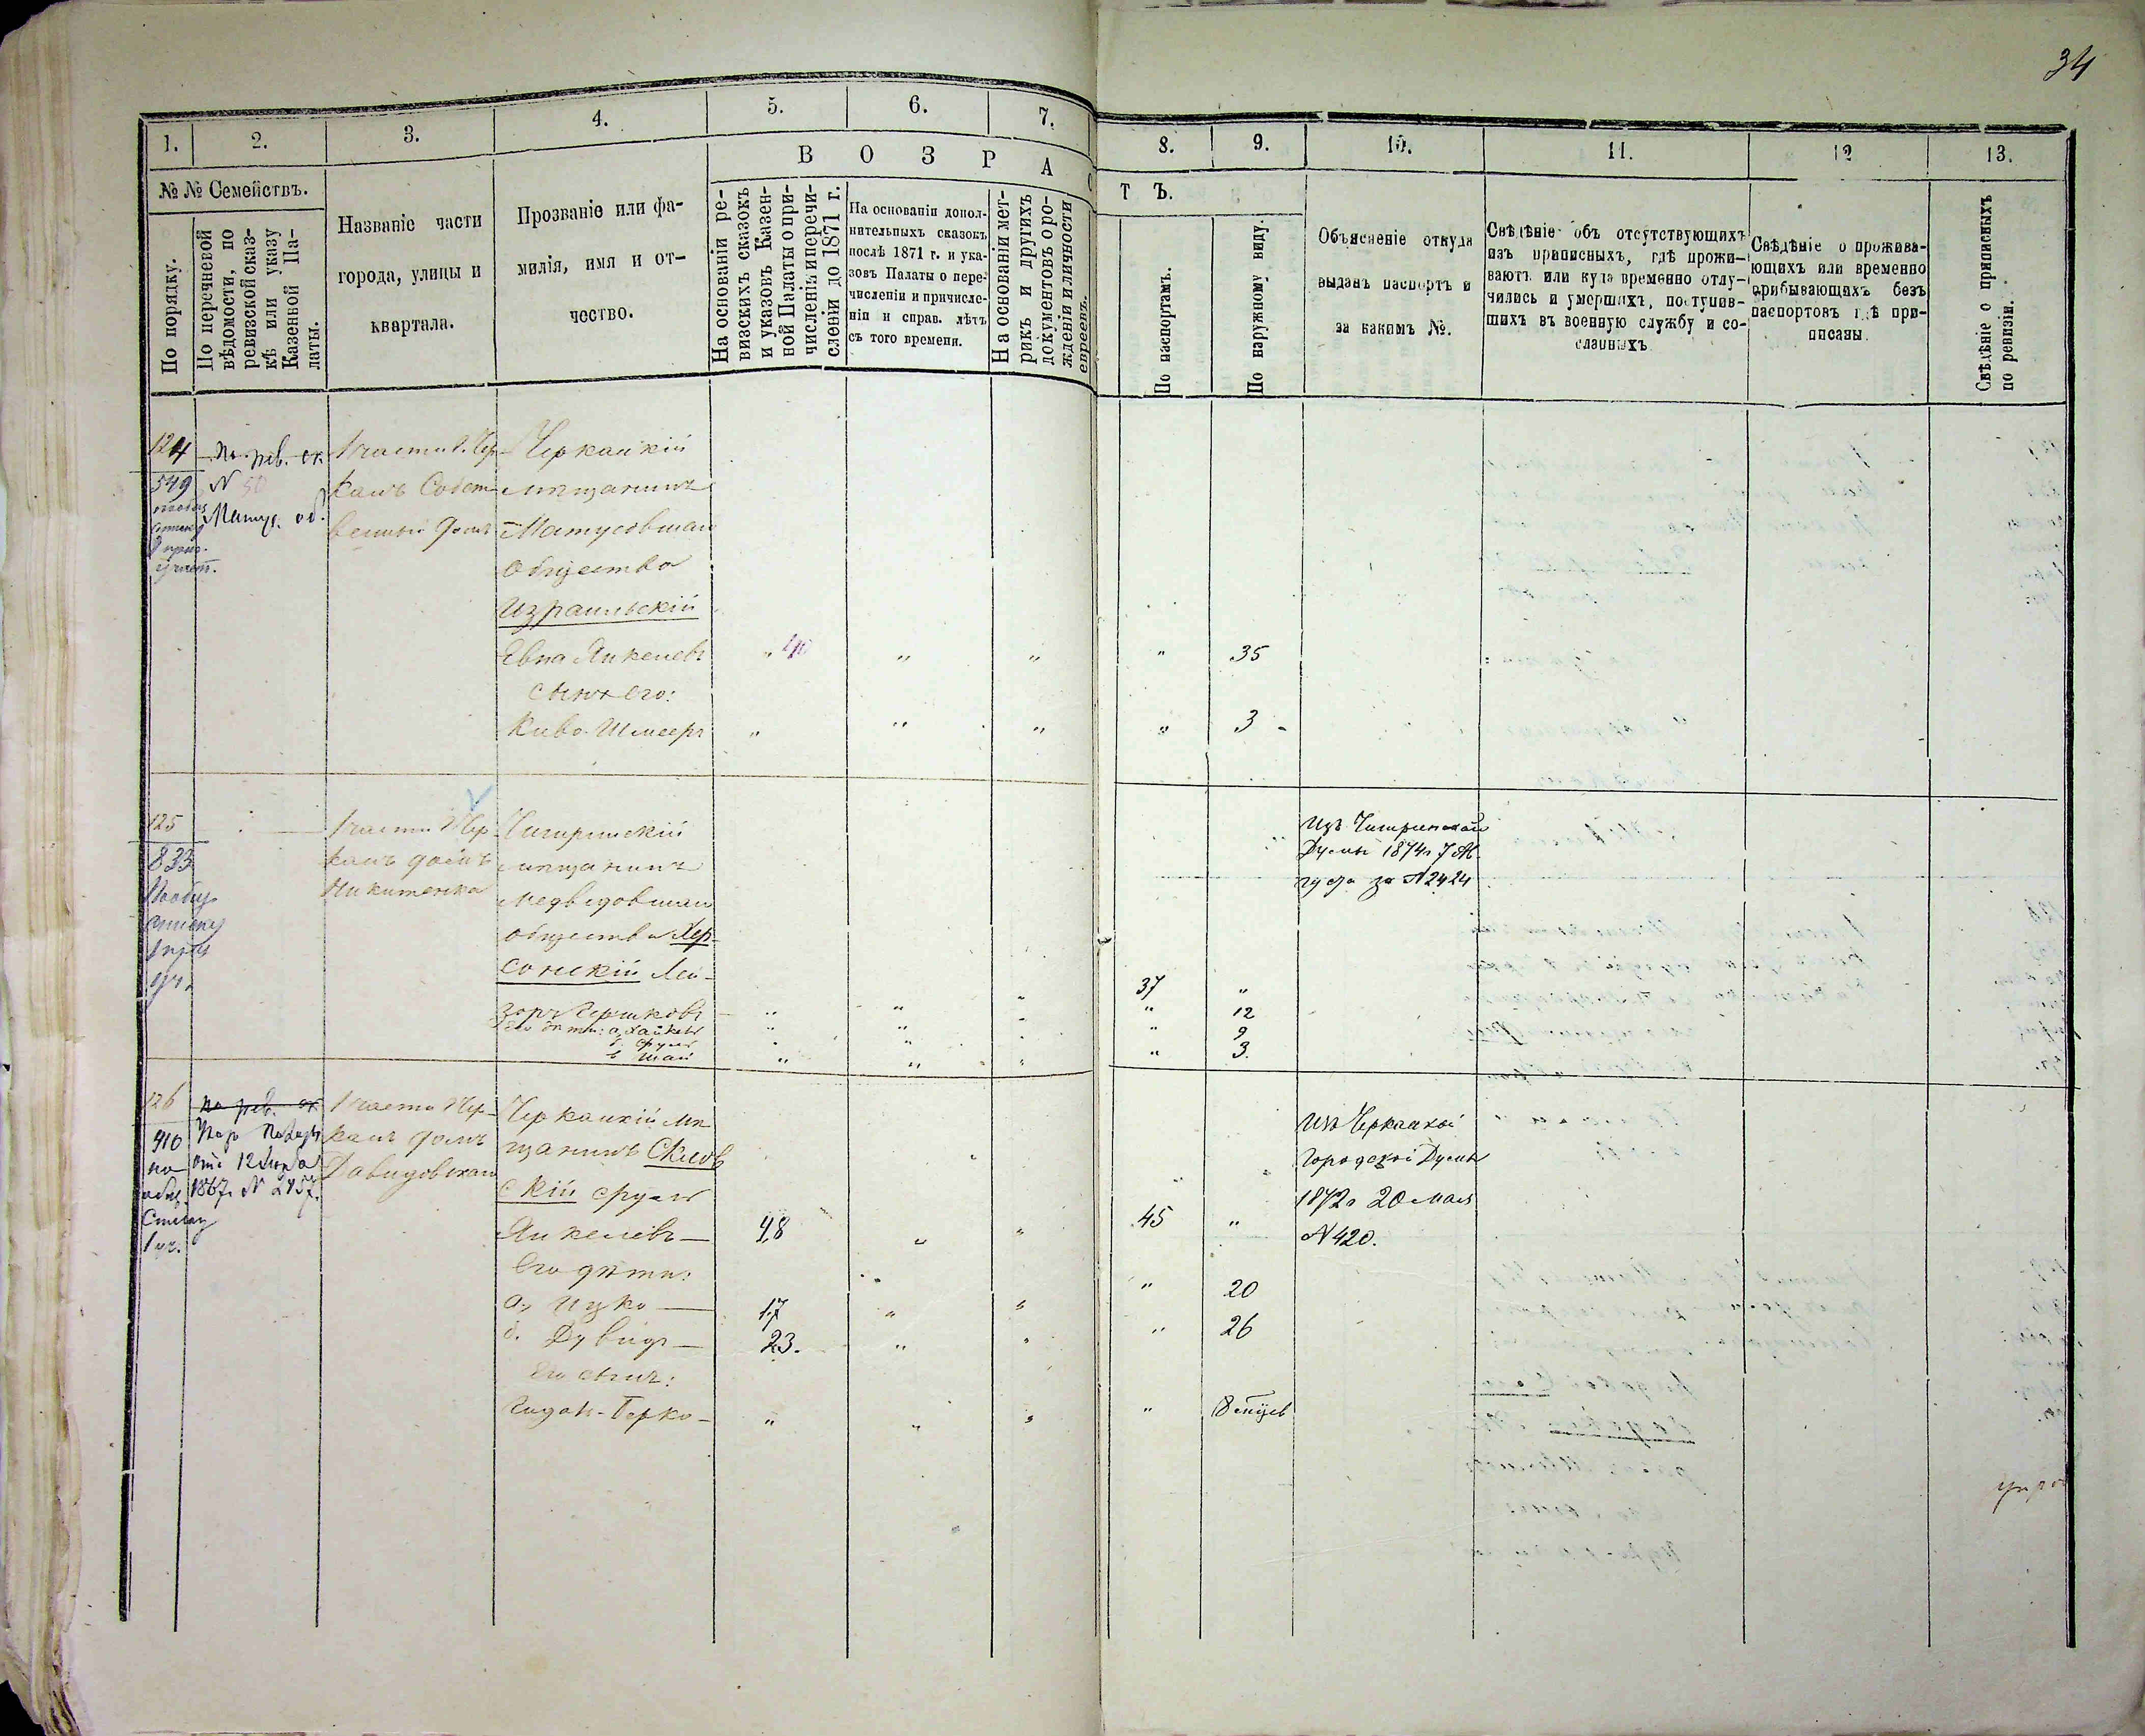 34
1.
2.
3.
4.
5.
6.
7.
8.
9.
10.
11.
12
13.
№ № Семействъ.
По порядку.
По перечневой
вѣдомости, по
ревизской сказ-
кѣ или указу
Казенной Па-
латы.
Названіе части
города, улицы и
квартала.
Прозваніе или фа-
милія, имя и от-
чество.
В О З Р А С Т Ъ.
На основаніи ре-
визскихъ сказокъ
и указовъ Казен-
ной Палаты о при-
численіи и перечи-
сленіи до 1871 г.
На основаніи допол-
нительныхъ сказокъ
послѣ 1871 г. и ука-
зовъ Палаты о пере-
численіи и причисле-
ніи и справ. лѣтъ
съ того времени.
На основаніи мет-
рикъ и другихъ
документовъ о ро-
жденіи и личности
евреевъ.
По паспортамъ.
По наружному виду.
Объясненіе откуда
выданъ паспортъ и
за какимъ №.
Свѣдѣніе объ отсутствующихъ
изъ приписныхъ, гдѣ прожи-
ваютъ или куда временно отлу-
чились и умершихъ, поступив-
шихъ въ военную службу и со-
сланныхъ
Свѣдѣніе о прожива-
ющихъ или временно
прибывающихъ безъ
паспортовъ гдѣ при-
писаны.
Свѣдѣніе о приписныхъ
по ревизіи.
124
549
По рев. ск.
N 50
Матус. об.
1 части г. Чер
касъ Собст
венный домъ
Черкаскій
мѣщанинъ
Матусовскаго
общества
Израильскій
Евна Янкелевъ " 40 " " " 35
сынъ его:
Киво-Шмееръ " " " " 3
125
833
1 части г. Чер
касъ домъ
Никитенка
Чигиринскій
мѣщанинъ
Медведовскаго
общества Хер-
сонскій Лей-
зоръ Гершковъ " " " 37 "
его дѣти: а, Хайкель " " " " 12
б. Сруль " " " " 9
в Шай " " " " 3.
Изъ Чигиринской
Думы 1874 г 7 Ав-
густа за N 2424
126
410
по
общ.
Списку
1 уч.
По рев. ск
отъ 12
1867 N 2457.
1 части г. Чер-
касъ домъ
Давидовскаго
Черкаскій мѣ
щанинъ Скловъ
скій Сруль
Янкелевъ — 48 " " 45 "
Его дѣти:
а, Ицко — 17 " " " 20
б. Дувидъ — 23. " " " 26
Его сынъ:
Гидон-Берко - " " " " 8 мѣцев
Изъ Черкаской
Городской Думы
1872 г 20 мая
N 420.